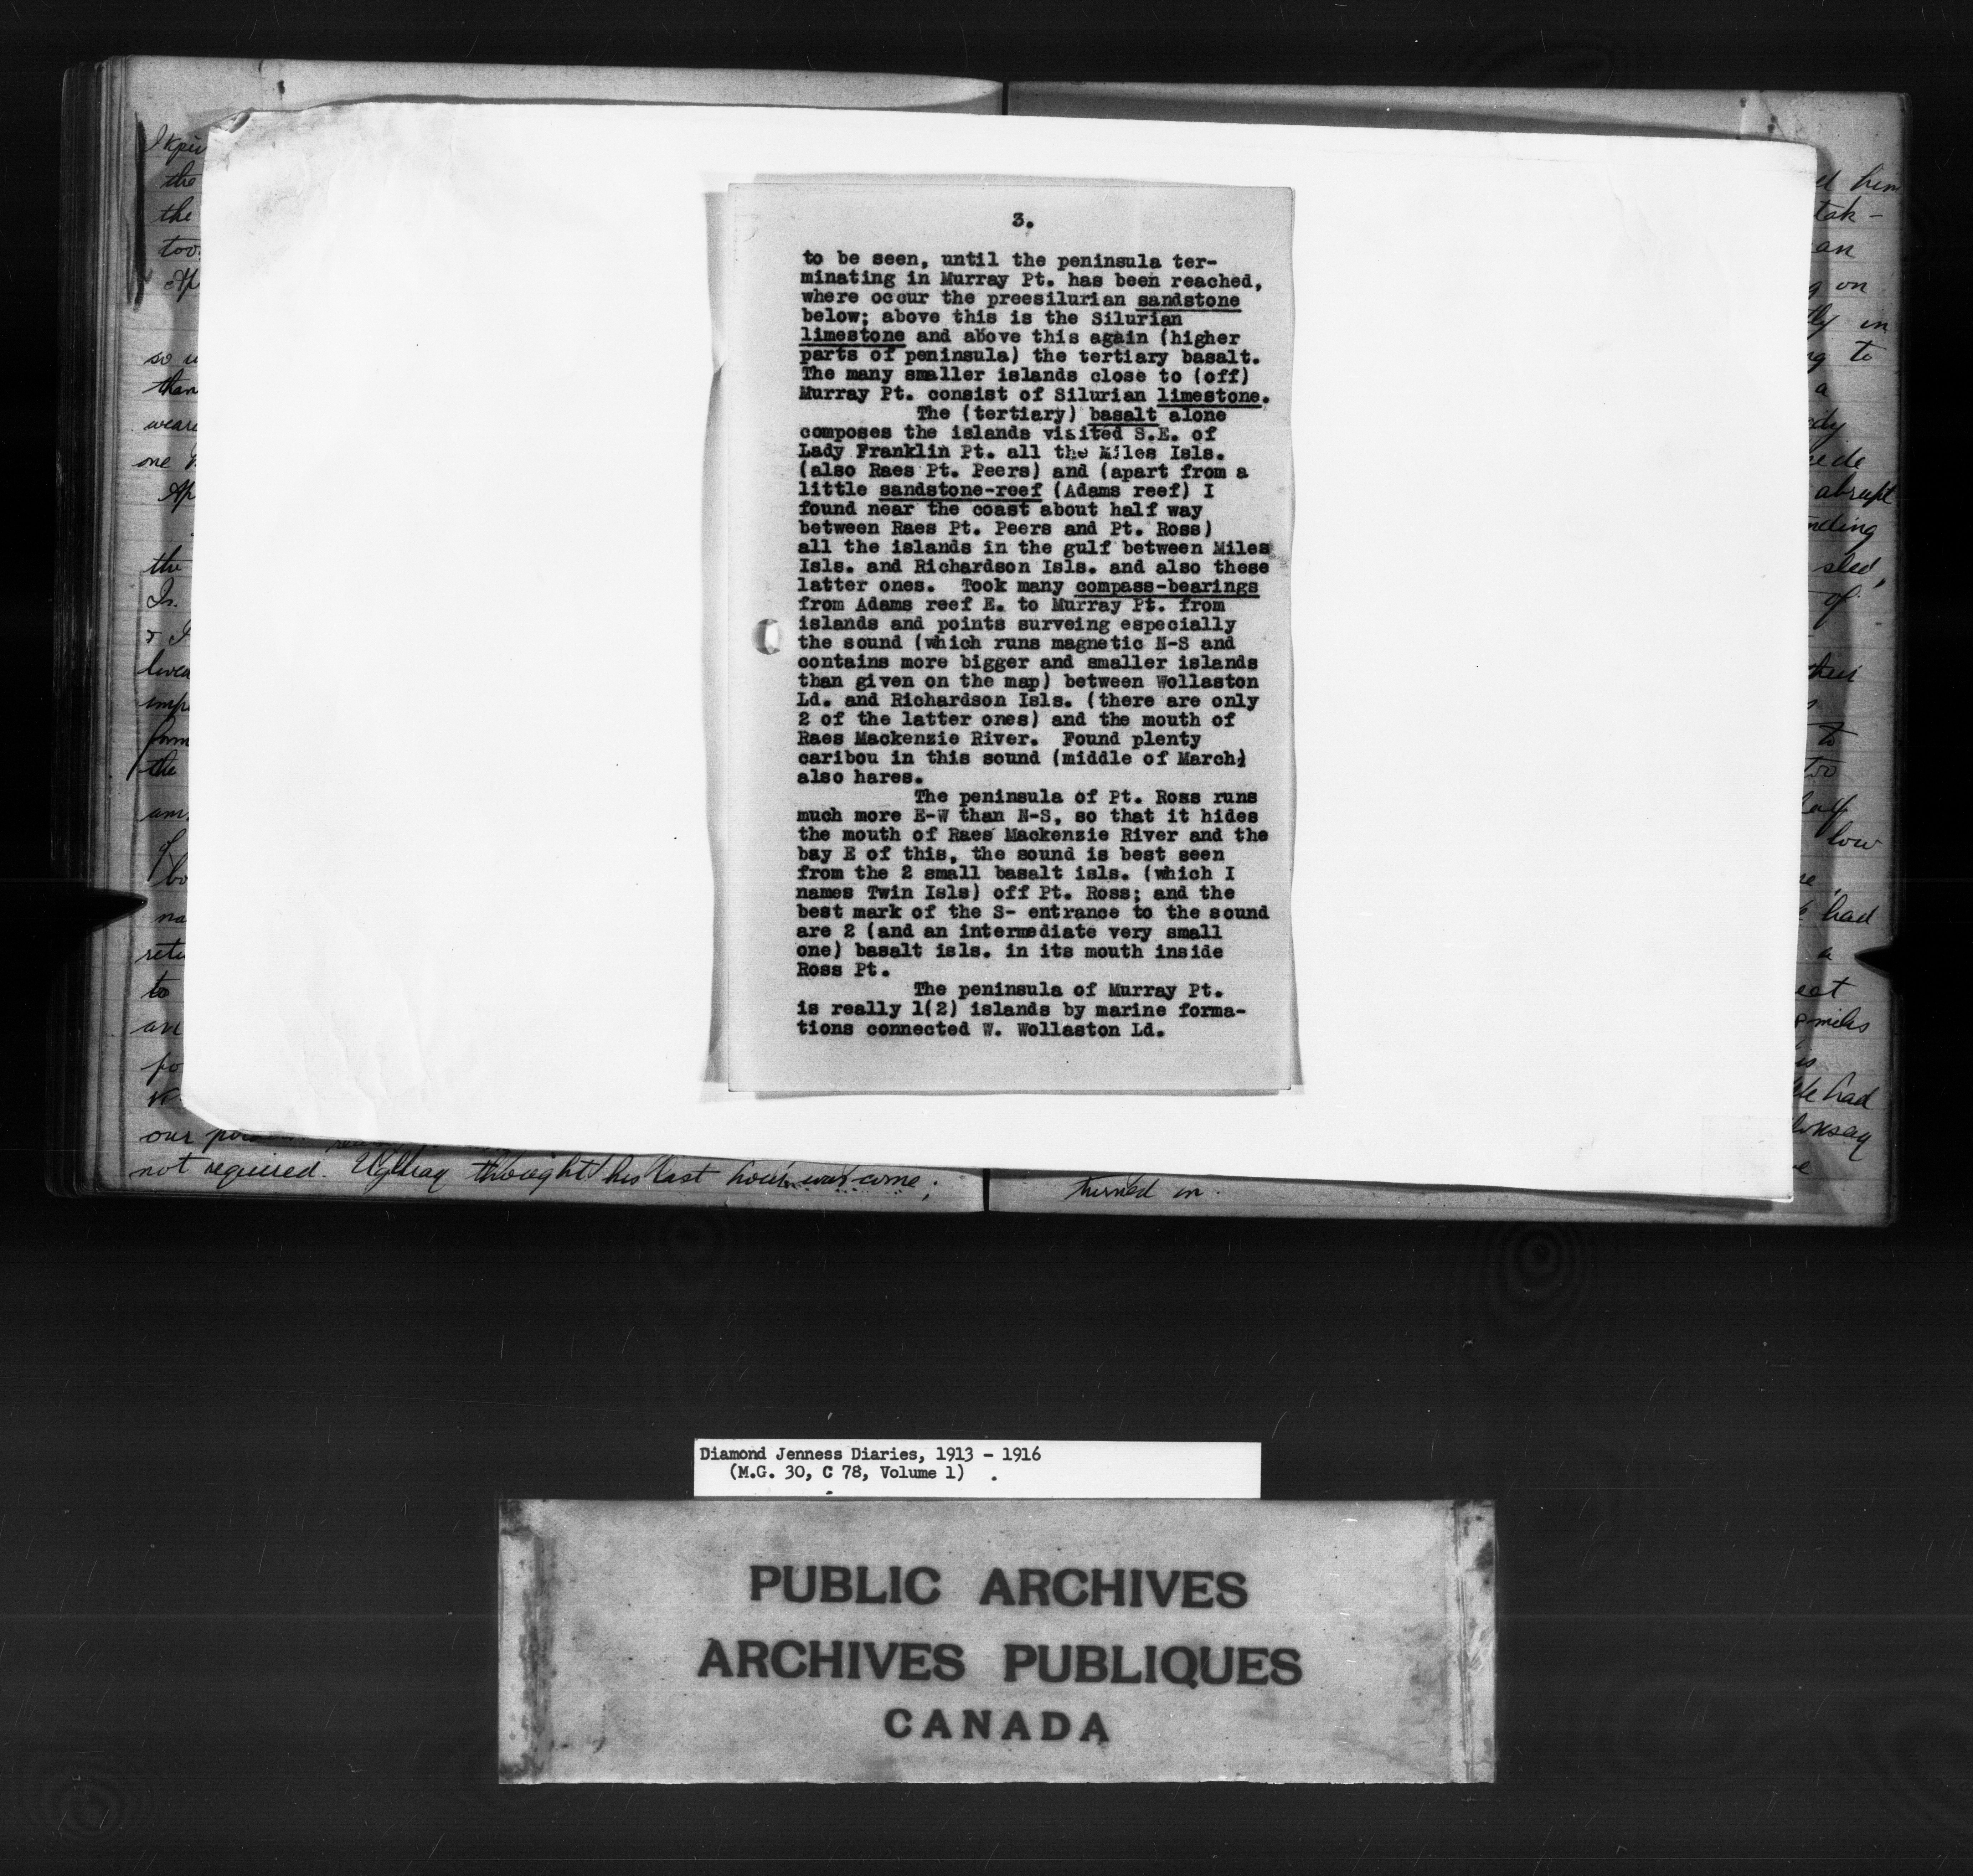 3.
to be seen, until the peninsula ter-
minating in Murray Pt. has been reached,
where occur the preesilurian sandstone
below; above this is the Silurian
limestone and above this again (higher
parts of peninsula) the tertiary basalt.
The many smaller islands close to (off)
Murray Pt. consist of Silurian limestone.
The (tertiary) basalt alone
composes the islands visited S.E. of
Lady Franklin Pt. all the Miles Isls.
(also Raes Pt. Peers) and (apart from a
little sandstone-reef (Adams reef) I
found near the coast about half way
between Raes Pt. Peers and Pt. Ross)
all the islands in the gulf between Miles
Isls. and Richardson Isls. and also these
latter ones. Took many compass-bearings
from Adams reef E. to Murray Pt. from
islands and points surveing especially
the sound (which runs magnetic N-S and
contains more bigger and smaller islands
than given on the map) between Wollaston
Ld. and Richardson Isls. (there are only
2 of the latter ones) and the mouth of
Raes Mackenzie River. Found plenty
caribou in this sound (middle of March)
also hares.
The peninsula of Pt. Ross runs
much more E-W than N-S, so that it hides
the mouth of Raes Mackenzie River and the
bay E of this, the sound is best seen
from the 2 small basalt isls. (which I
names Twin Isls) off Pt. Ross; and the
best mark of the S- entrance to the sound
are 2 (and an intermediate very small
one) basalt isls. in its mouth inside
Ross Pt.
The peninsula of Murray Pt.
is really 1(2) islands by marine forma-
tions connected W. Wollaston Ld.
the
the
so
than
one
the
the
to
an
our
not required. Uglsag thought his last hour was come;
him
an
on
in
to
a
abrupt
sled,
of
to
low
had
a
miles
had
turned in.
Diamond Jenness Diaries, 1913 - 1916
(M.G. 30, C 78, Volume 1)
PUBLIC ARCHIVES
ARCHIVES PUBLIQUES
CANADA